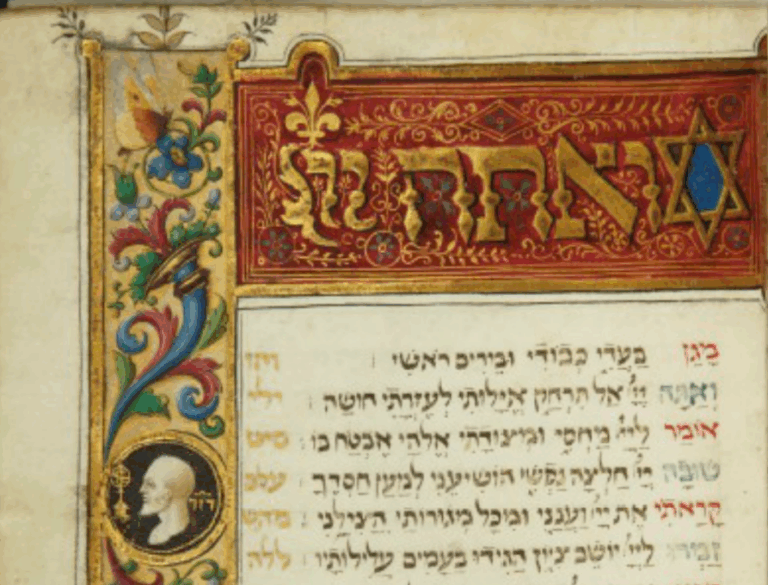 ואתה יי
מגן בעדי כבודי ומרים ראשי : והו
ואתה יי אל תרחק אילותי לעזרתי חושה : ילי
אומר ליי מחסי ומצודתי אלהי אבטח בו : סיט
שובה יי חלצה נפשי הושיעני למען חסדך עלם
קראתי את יי ויענני ומכל מגורותי הצילני מהש
זמרו ליי יושב ציון הגידו בעמים עלילותיו ללה
דוד